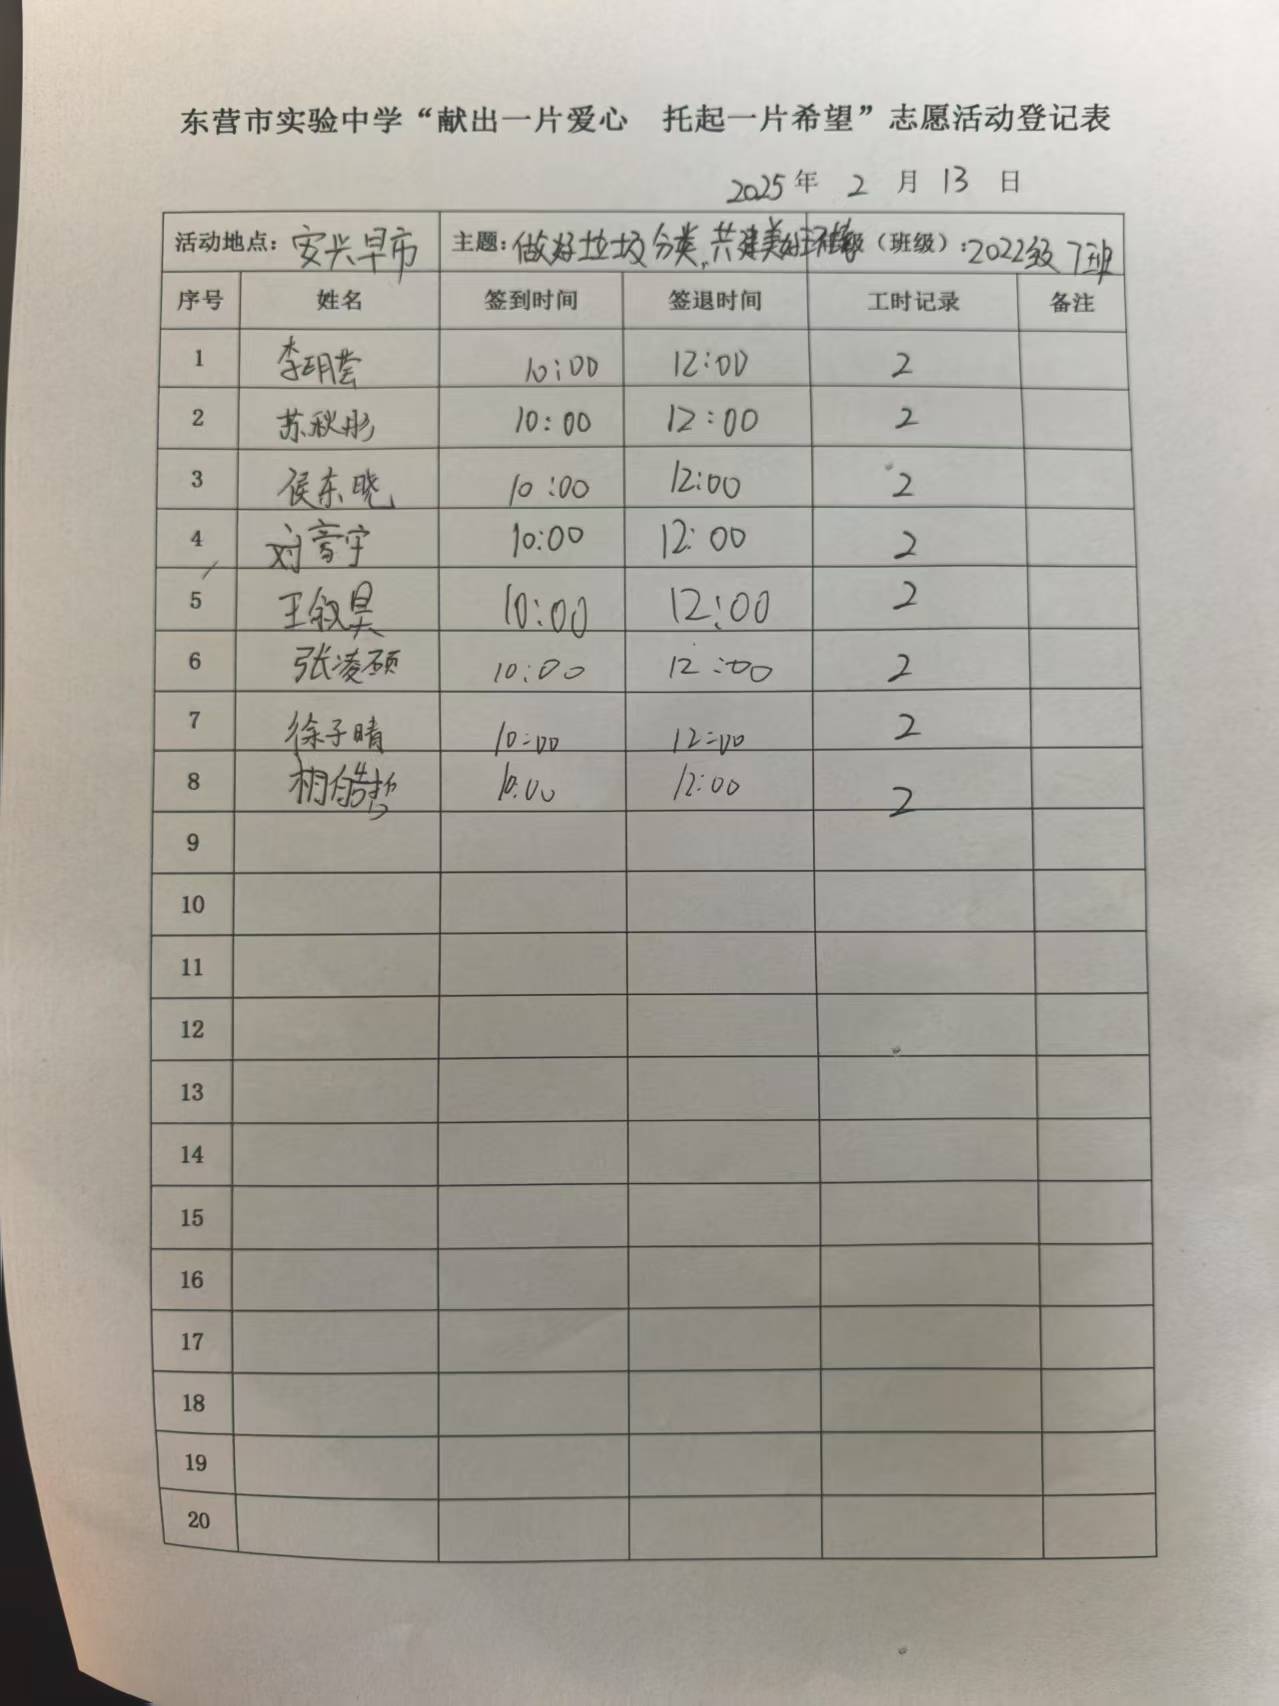 东营市实验中学“献出一片爱心 托起一片希望”志愿活动登记表
2025年 2 月 13 日
活动地点：安兴早市 主题：做好垃圾分类，共建美好环境 级（班级）：2022级 7班
序号 姓名 签到时间 签退时间 工时记录 备注
1 李玥芸 10:00 12:00 2
2 苏秋彤 10:00 12:00 2
3 侯东晓 10:00 12:00 2
4 刘宇 10:00 12:00 2
5 王叙昊 10:00 12:00 2
6 张凌硕 10:00 12:00 2
7 徐子晴 10:00 12:00 2
8 10:00 12:00 2
9
10
11
12
13
14
15
16
17
18
19
20